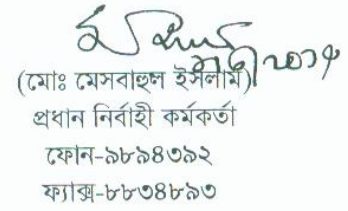 (মোঃ মেসবাহুল ইসলাম)
প্রধান নির্বাহী কর্মকর্তা
ফোন-৯৮৯৪৩৯২
ফ্যাক্স-৮৮৩৪৮৯৩